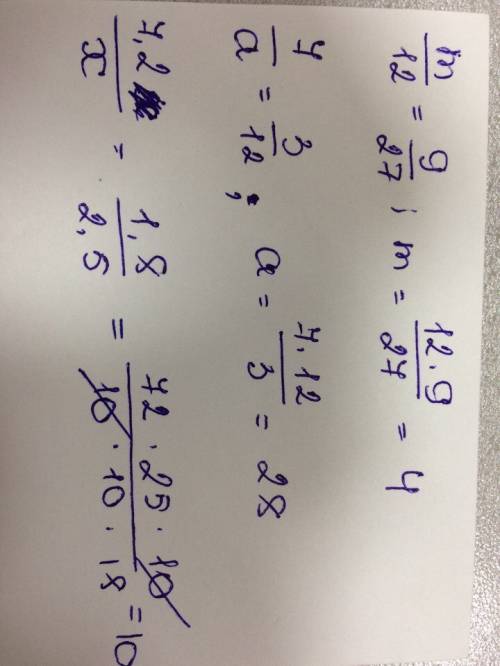 m/12 = 9/27 ; m = 12·9/27 = 4
7/a = 3/12 , a = 7·12/3 = 28
7,2/x = 1,8/2,5 = 72·25·10/10·10·18 = 10